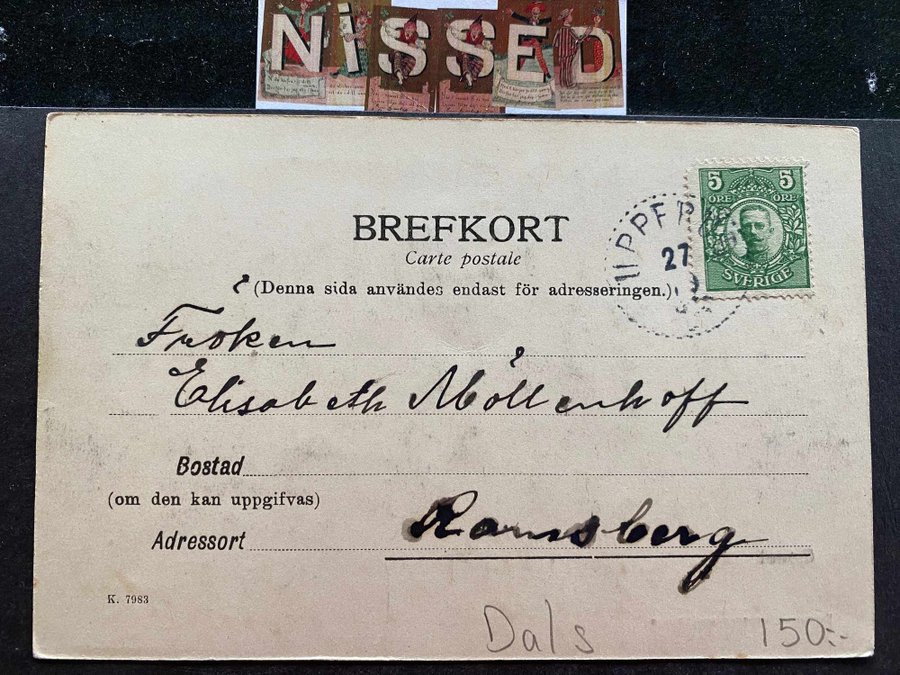 NISSED
BREFKORT
Carte postale
(Denna sida användes endast för adresseringen.)
5 5
ÖRE ÖRE
SVERIGE
27
Fröken
Elisabeth Möllenhoff
Bostad
(om den kan uppgifvas)
Adressort Ramsberg
K. 7983
Dals 150:-